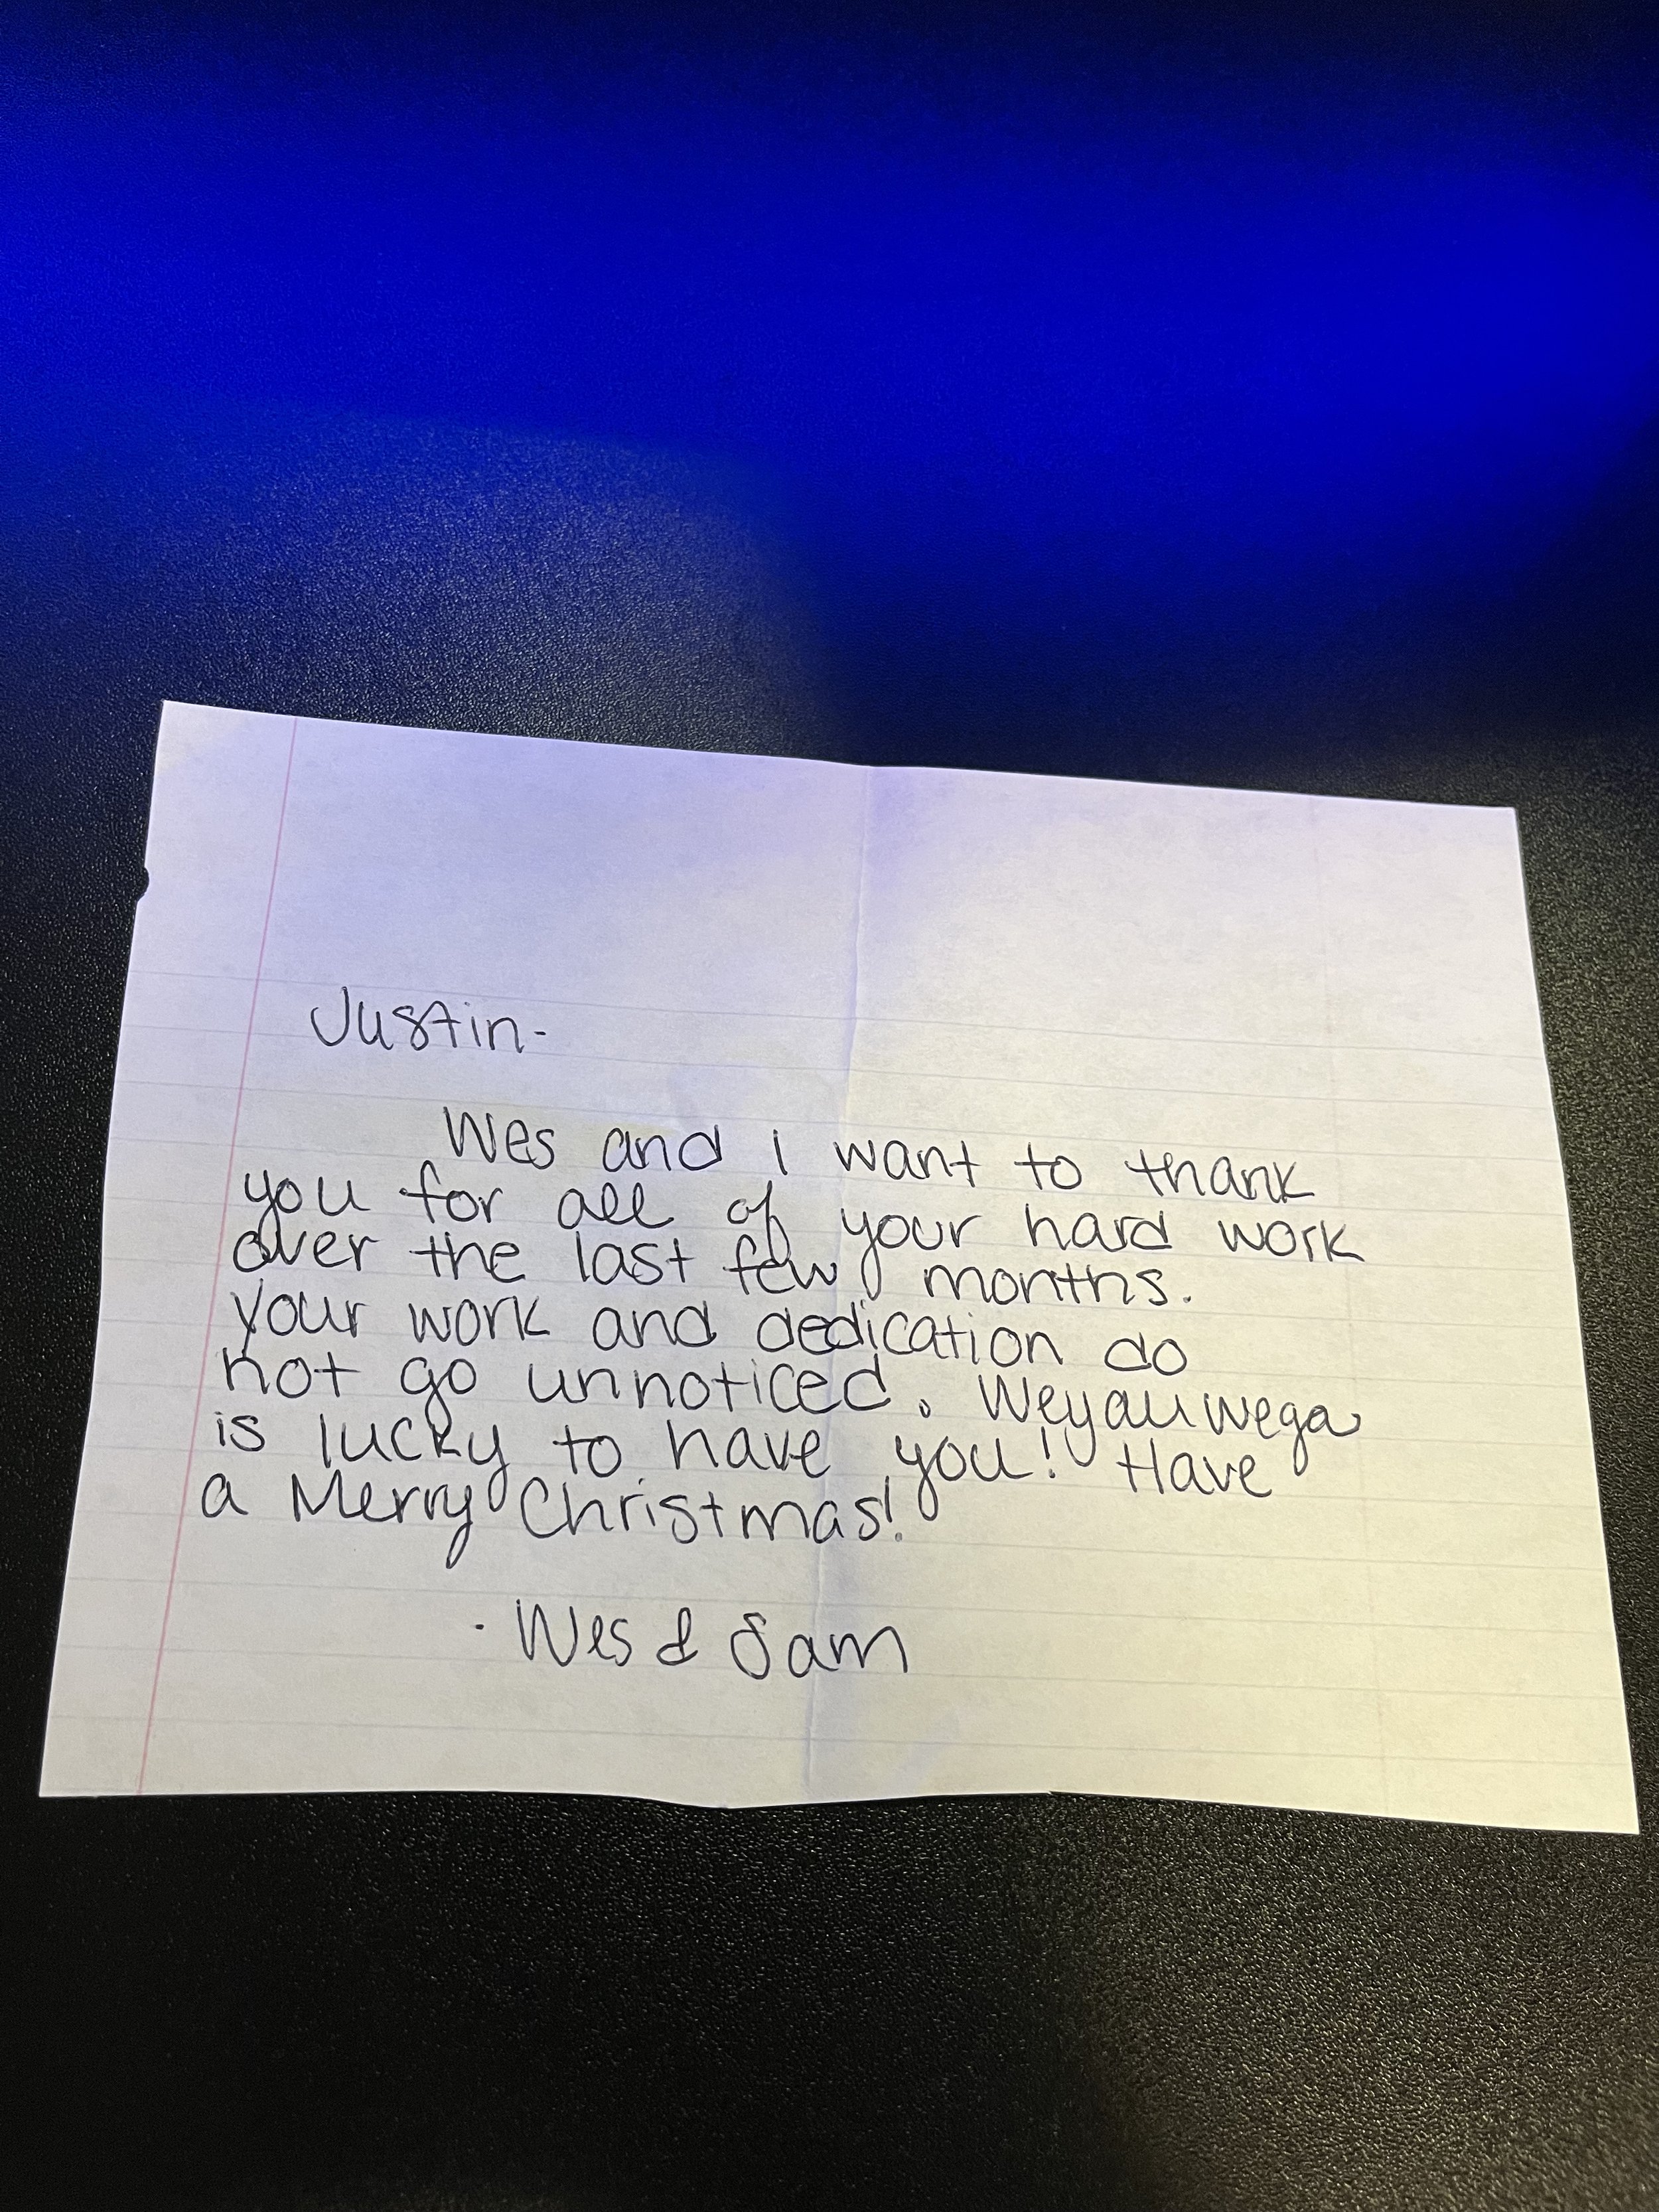 Justin-
Wes and I want to thank
you for all of your hard work
over the last few months.
Your work and dedication do
not go unnoticed. Weyauwega
is lucky to have you! Have
a Merry Christmas!
- Wes & Sam